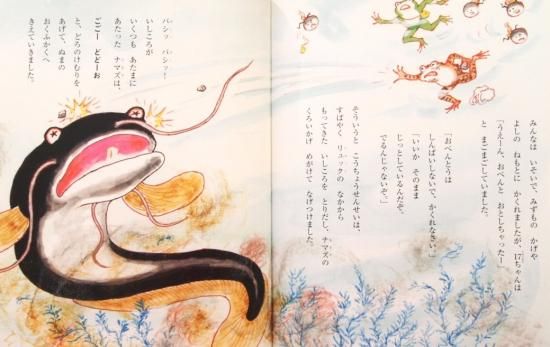 みんなは いそいで、みずもの かげや
よしの ねもとに かくれましたが、17ちゃんは
「うえーん、おべんと おとしちゃったー」
と まごまごしていました。
「おべんとうは
しんぱいしないで、かくれなさい。」
「いいか そのまま
じっとしているんだぞ。
でるんじゃないぞ。」
そういうと こうちょうせんせいは、
すばやく リュックの なかから
もってきた いしころを とりだし、ナマズの
くろいかげ めがけて なげつけました。
バシッ バシッ！
いしころが
いくつも あたまに
あたった ナマズは、
ごごー どどーお
と、どろのけむりを
あげて、ぬまの
おくふかくへ
きえていきました。